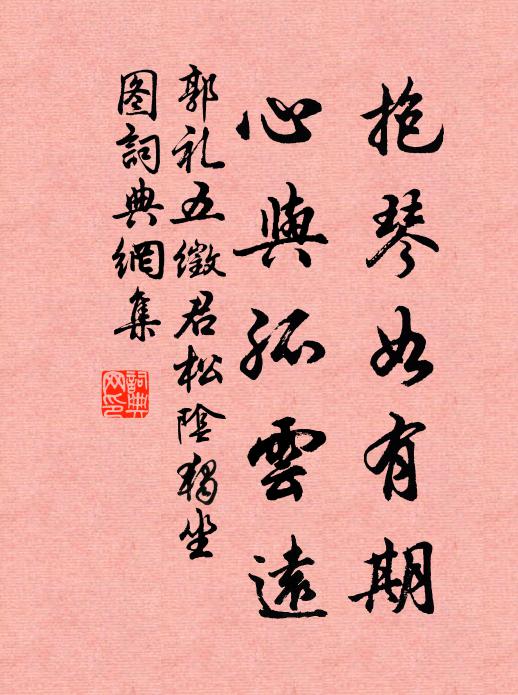 抱琴如有期
心與孤雲遠
郭礼五徵君松陰獨坐
图詞典網集
詞典
网印